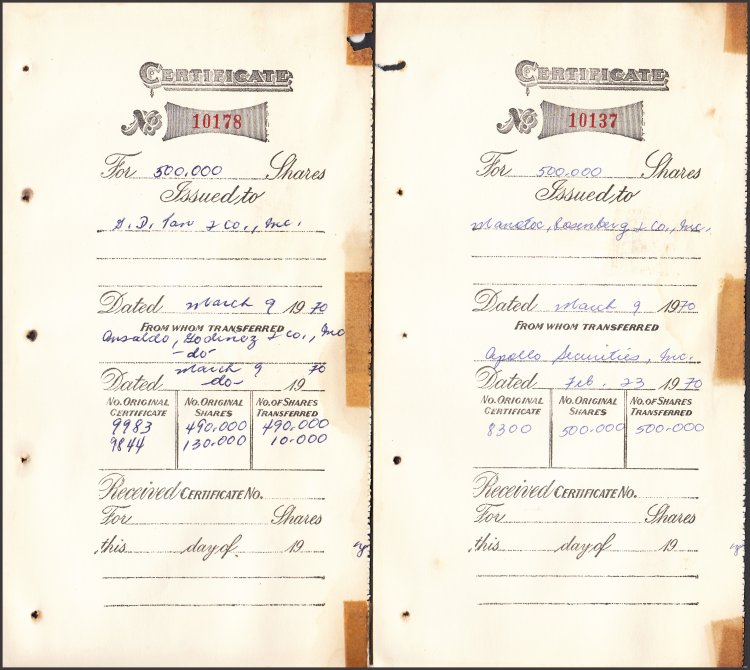 CERTIFICATE
No 10178
For 500,000 Shares
Issued to
& Co., Inc.
Dated March 9 1970
FROM WHOM TRANSFERRED
Ansaldo, Godinez & Co., Inc
-do-
March 9 70
Dated -do- 19
NO. ORIGINAL CERTIFICATE NO. ORIGINAL SHARES NO. OF SHARES TRANSFERRED
9983 490,000 490,000
9844 130,000 10,000
Received CERTIFICATE NO.
For Shares
this day of 19
CERTIFICATE
No 10137
For 500,000 Shares
Issued to
& Co., Inc.
Dated March 9 1970
FROM WHOM TRANSFERRED
Apollo Securities, Inc.
Dated Feb. 23 1970
NO. ORIGINAL CERTIFICATE NO. ORIGINAL SHARES NO. OF SHARES TRANSFERRED
8300 500,000 500,000
Received CERTIFICATE NO.
For Shares
this day of 19